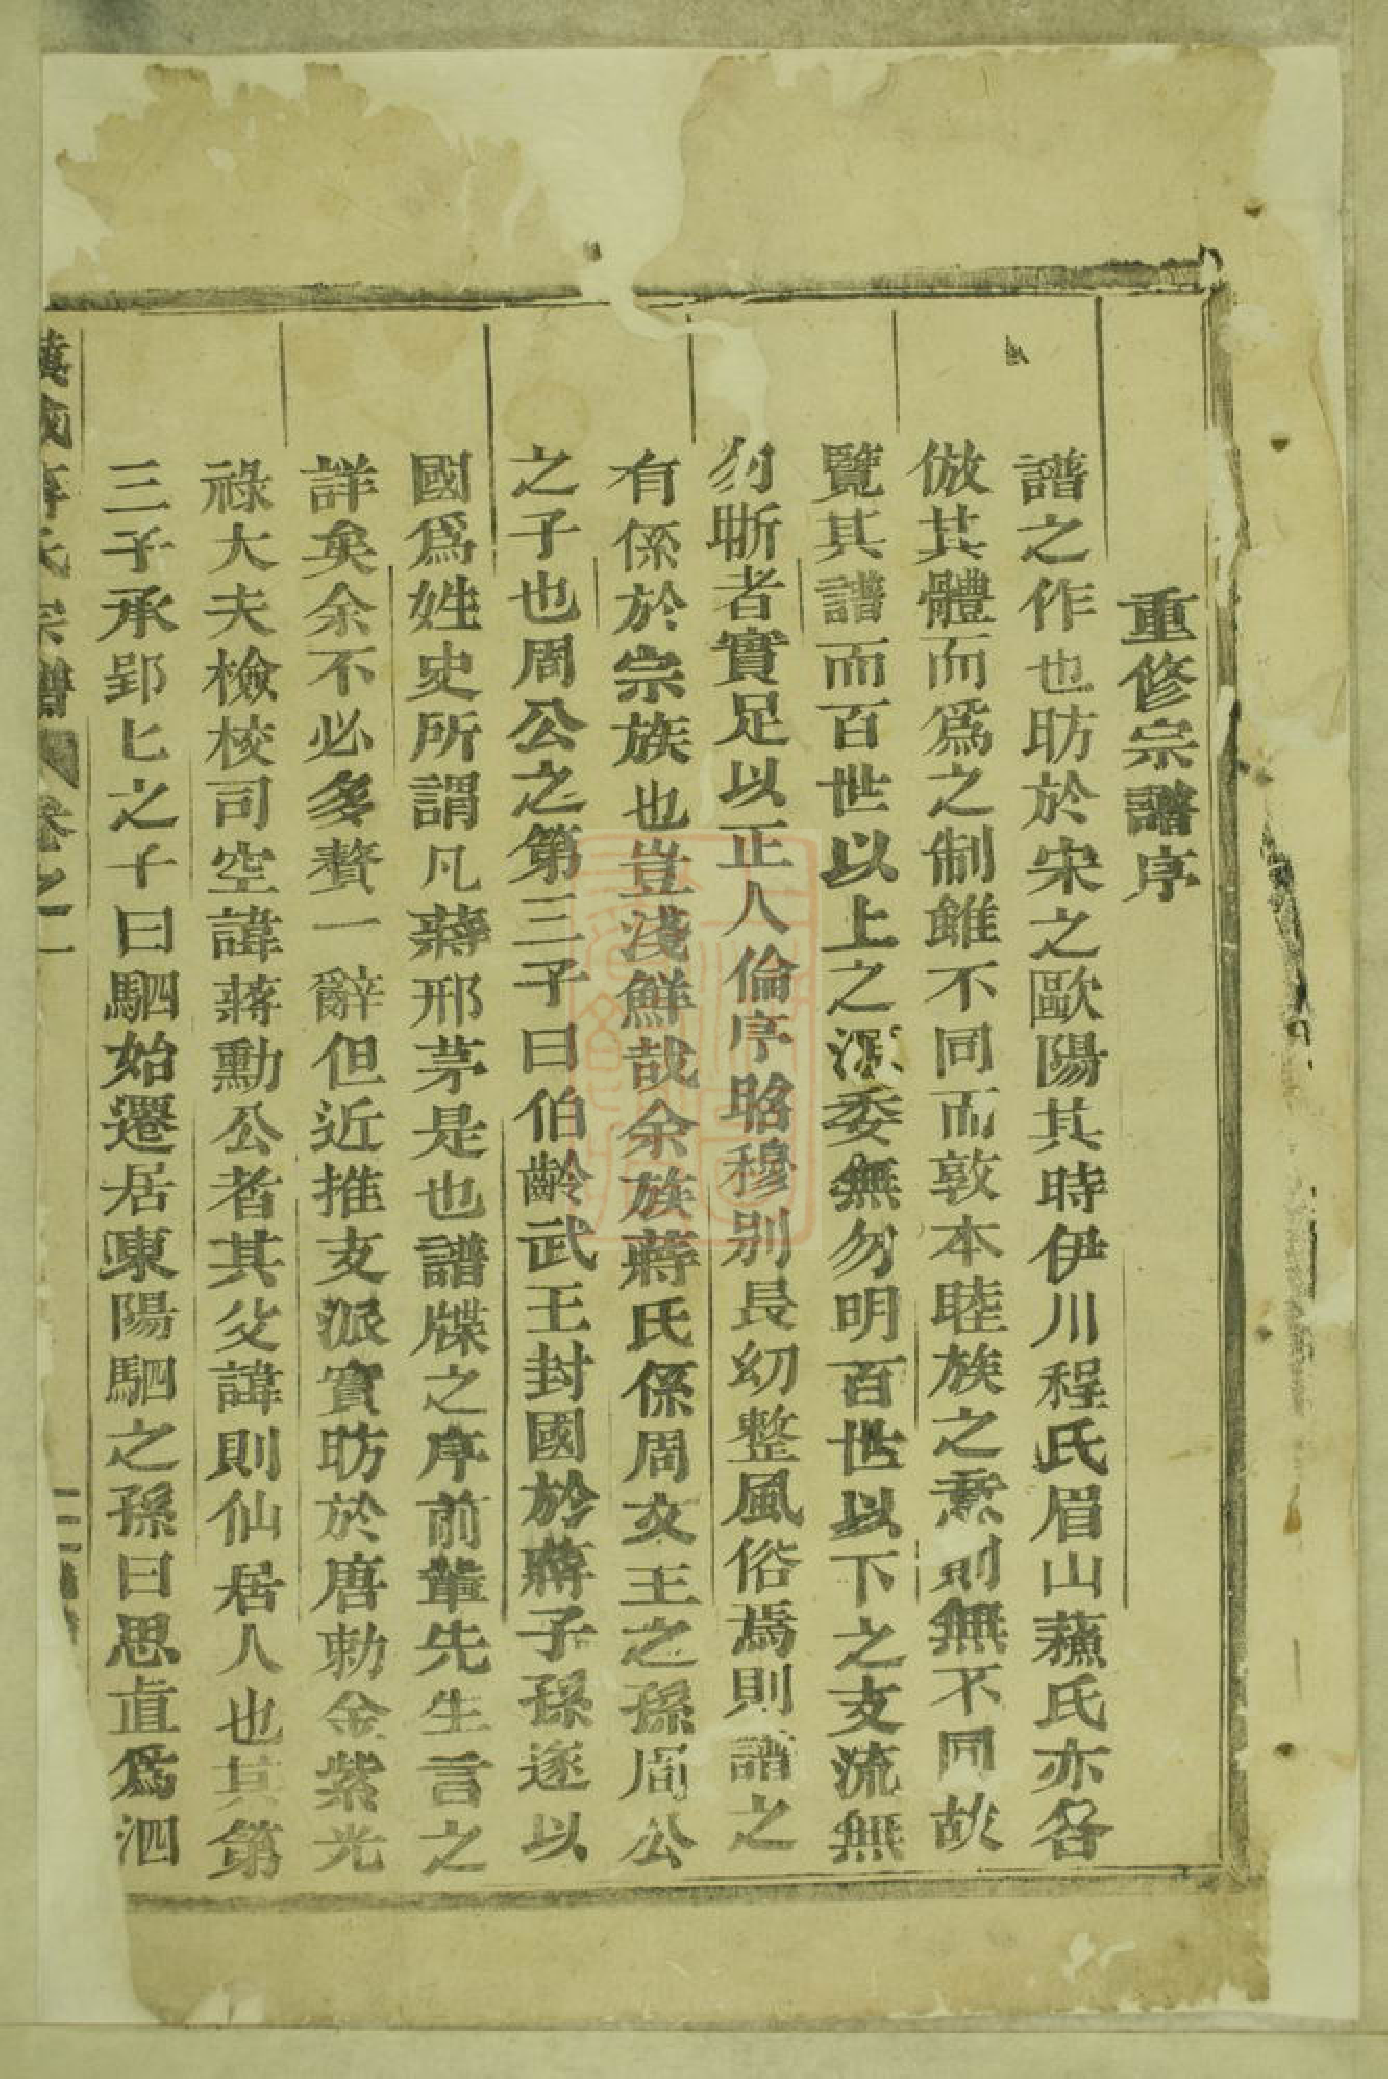 重修宗譜序
譜之作也昉於宋之歐陽其時伊川程氏眉山蘇氏亦各
倣其體而爲之制雖不同而敦本睦族之意則無不同故
覽其譜而百世以上之源委無勿明百世以下之支流無
勿晰者實足以正人倫序昭穆别長幼整風俗焉則譜之
有係於宗族也豈淺鮮哉余族蔣氏係周文王之孫周公
之子也周公之第三子曰伯齡武王封國於蔣子孫遂以
國爲姓史所謂凡蔣邢茅是也譜牒之序前輩先生言之
詳矣余不必多贅一辭但近推支派實昉於唐勅金紫光
祿大夫檢校司空諱蔣勳公者其父諱則仙居人也其第
三子承郢匕之子曰駟始遷居東陽駟之孫曰思直爲泗
氏宗譜 卷之一